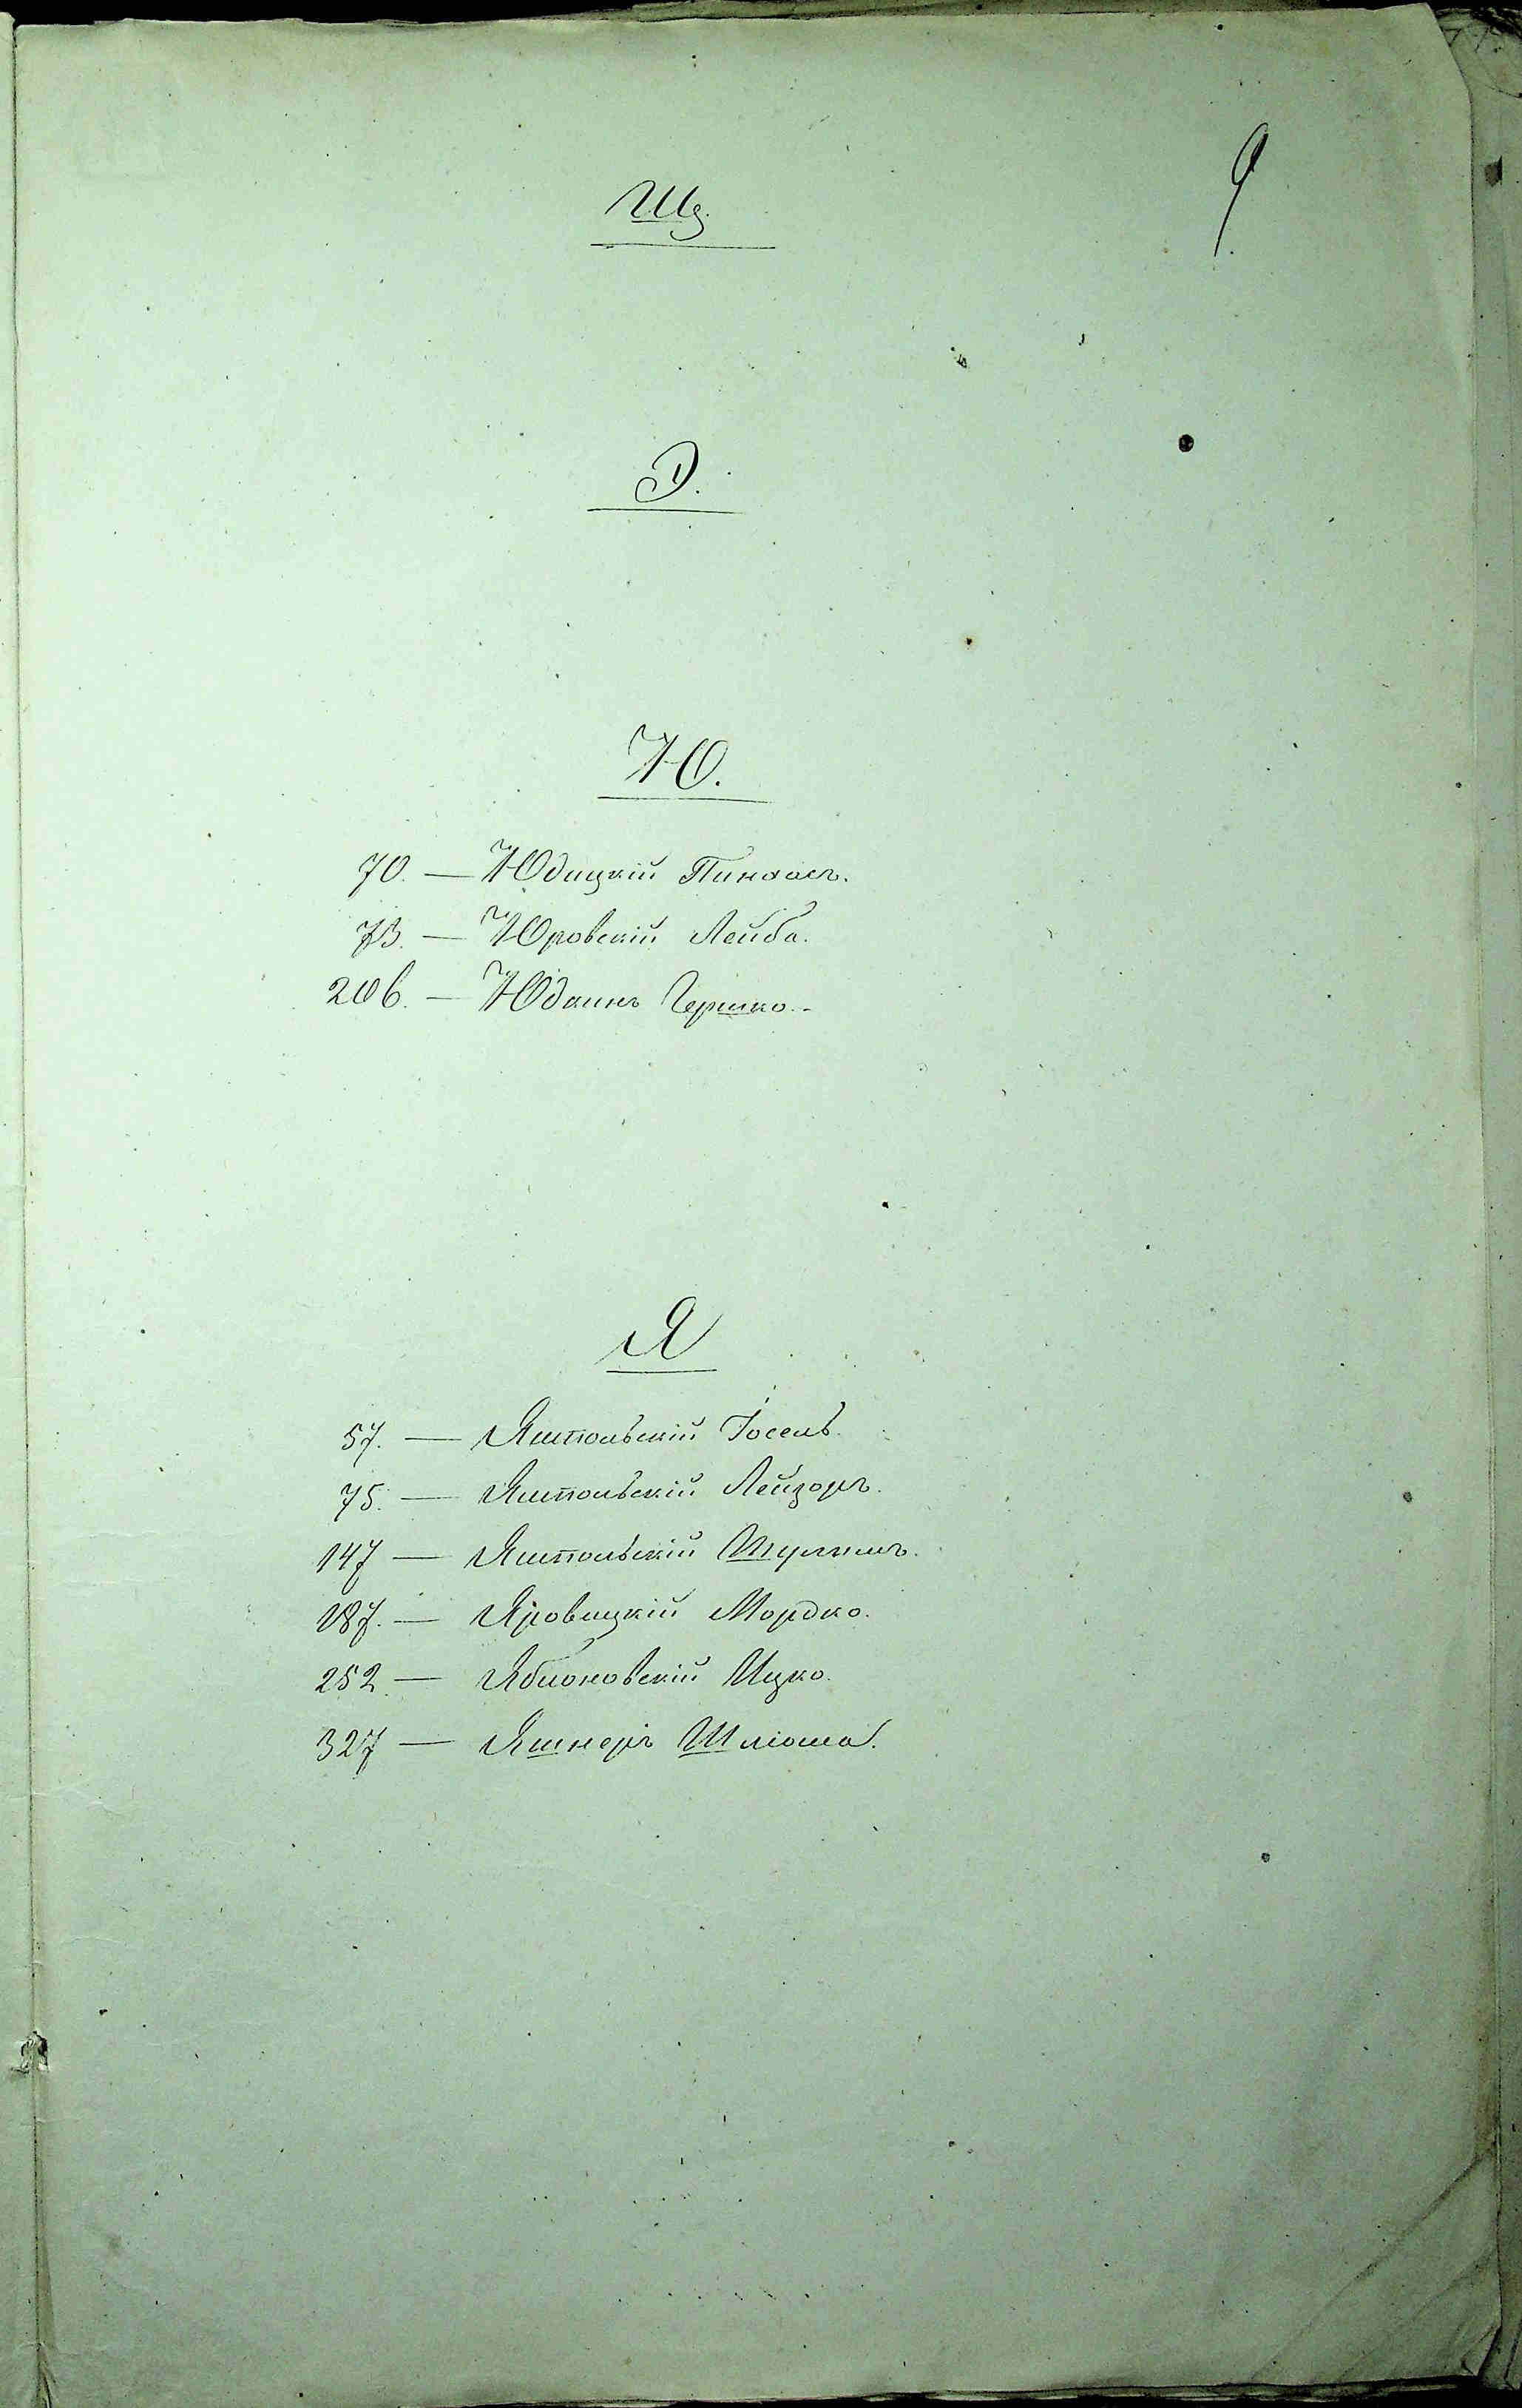 9
Щ.
Э.
Ю.
70. — Юдицкій Пинхасъ.
73. — Юровскій Лейба.
206. — Юдкинъ Гершко.
Я
57. — Ямпольскій Іосель.
75. — Ямпольскій Лейзоръ.
147 — Ямпольскій Шулимъ.
187. — Яровицкій Мордко.
252. — Яблоновскій Ицко.
327 — Яшнеръ Шліома.